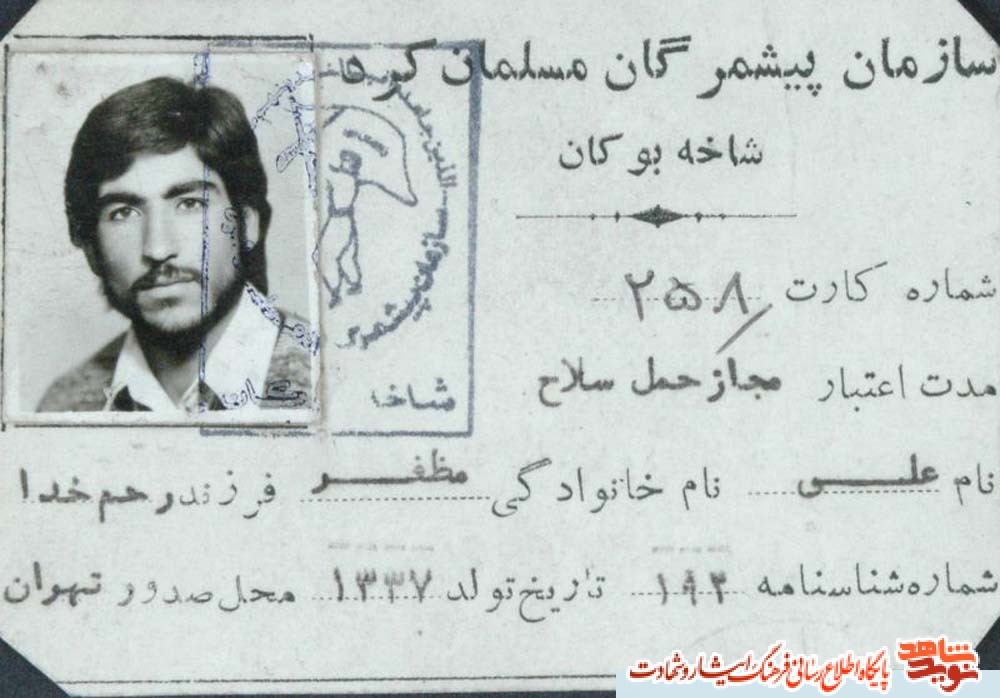 سازمان پیشمرگان مسلمان کرد
شاخه بوکان
شماره کارت ۲۵۸
مدت اعتبار مجاز حمل سلاح
نام علی نام خانوادگی مظفر فرزند رحم خدا
شماره شناسنامه ۱۹۳ تاریخ تولد ۱۳۳۷ محل صدور تهران
سازمان پیشمرگ
شاخه
نوید شاهد
پایگاه اطلاع رسانی فرهنگ ایثار و شهادت